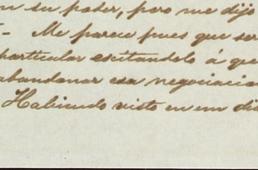 en su poder, pero me dijo
- Me parece pues que ser
particular escitandolo á que
abandonar esa negociacion
Habiendo visto en em di